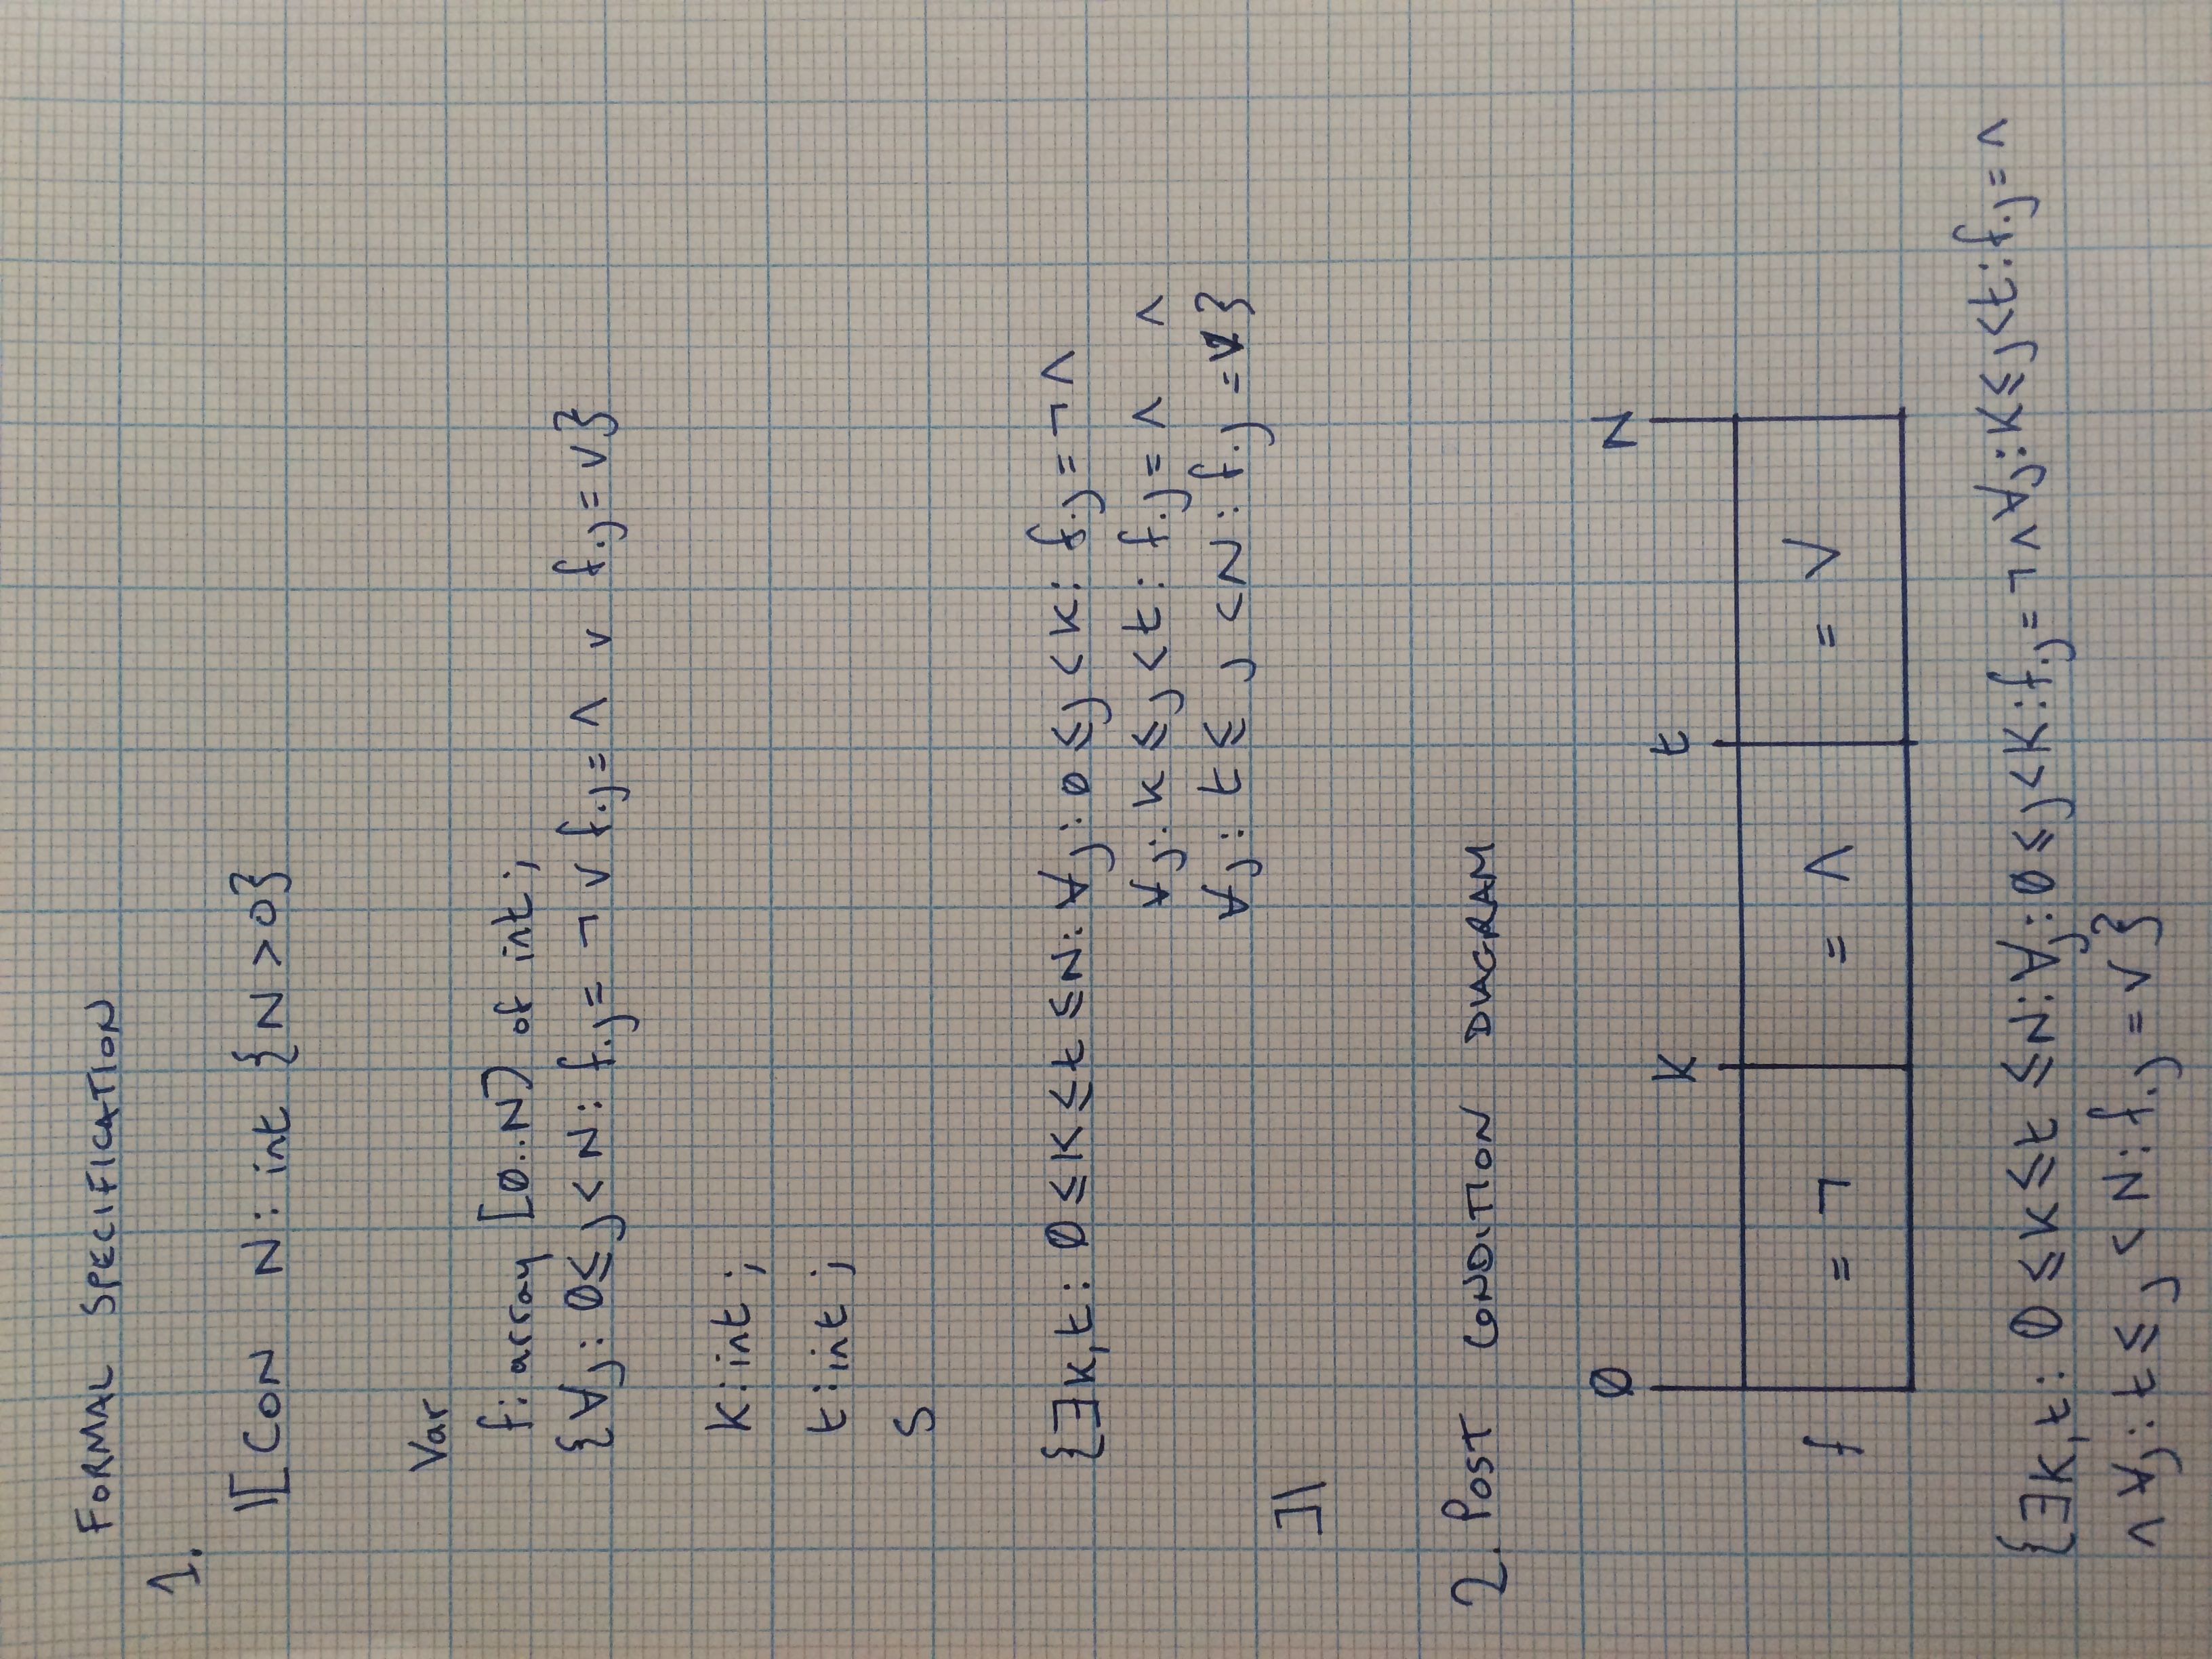 FORMAL SPECIFICATION
1.
|[ CON N: int {N > 0}
Var
f: array [0..N) of int;
{∀j: 0 ≤ j < N: f.j = ¬ ∨ f.j = ∧ ∨ f.j = ∨}
K: int;
t: int;
S
{∃K,t: 0 ≤ K ≤ t ≤ N: ∀j: 0 ≤ j < K: f.j = ¬ ∧
∀j: K ≤ j < t: f.j = ∧ ∧
∀j: t ≤ j < N: f.j = ∨}
]|
2. POST CONDITION DIAGRAM
0 N
K t
f = ¬ = ∧ = ∨
{∃K,t: 0 ≤ K ≤ t ≤ N: ∀j: 0 ≤ j < K: f.j = ¬ ∧ ∀j: K ≤ j < t: f.j = ∧
∧ ∀j: t ≤ j < N: f.j = ∨}